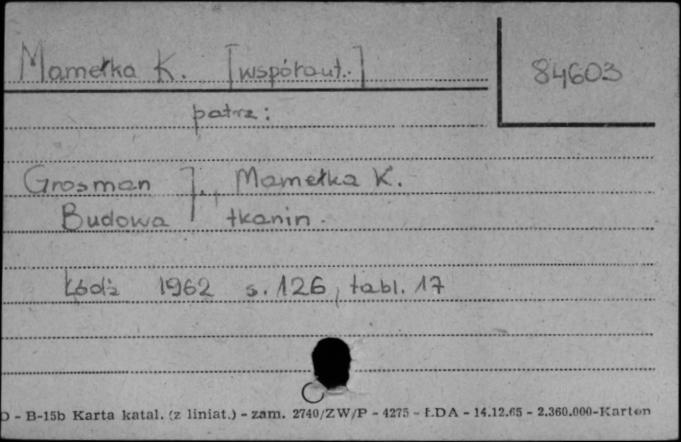 Mamełka K. [współaut.]
84603
patrz:
Grosman J., Mamełka K.
Budowa tkanin.
Łódź 1962 s. 126, tabl. 17
D - B-15b Karta katal. (z liniat.) - zam. 2740/ZW/P - 4275 - ŁDA - 14.12.65 - 2.360.000-Karton